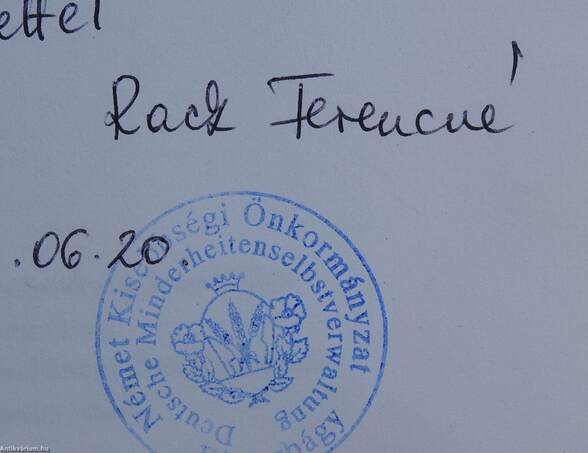 Rack Ferencné
.06.20.
Német Kisebbségi Önkormányzat
Deutsche Minderheitenselbstverwaltung
Antikvárium.hu